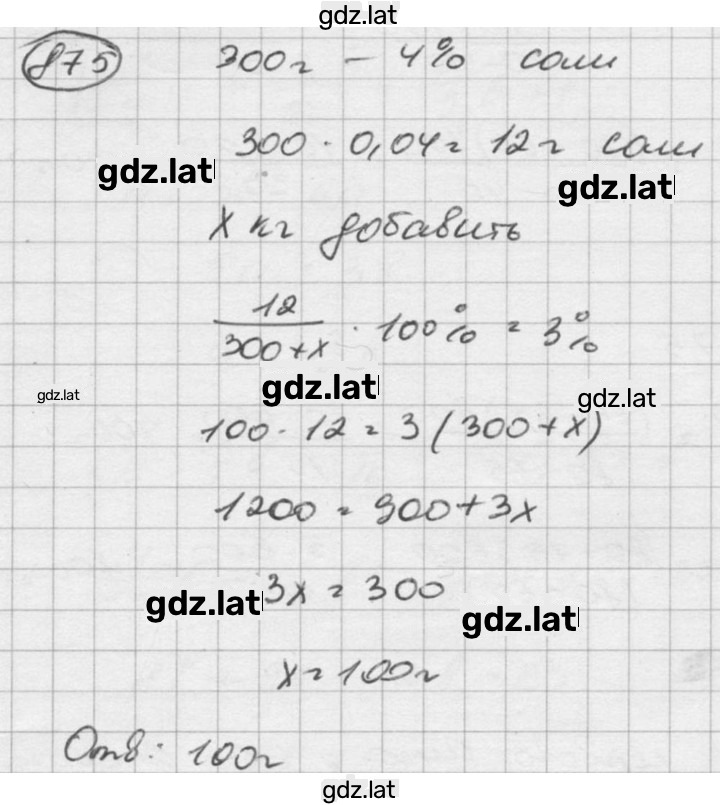 gdz.lat
875 300г – 4% соли
300 · 0,04 = 12г соли
gdz.lat gdz.lat
x кг добавить
12/(300+x) · 100% = 3%
gdz.lat gdz.lat gdz.lat
100 · 12 = 3(300+x)
1200 = 900+3x
3x = 300
gdz.lat gdz.lat
x = 100г
Отв: 100г
gdz.lat